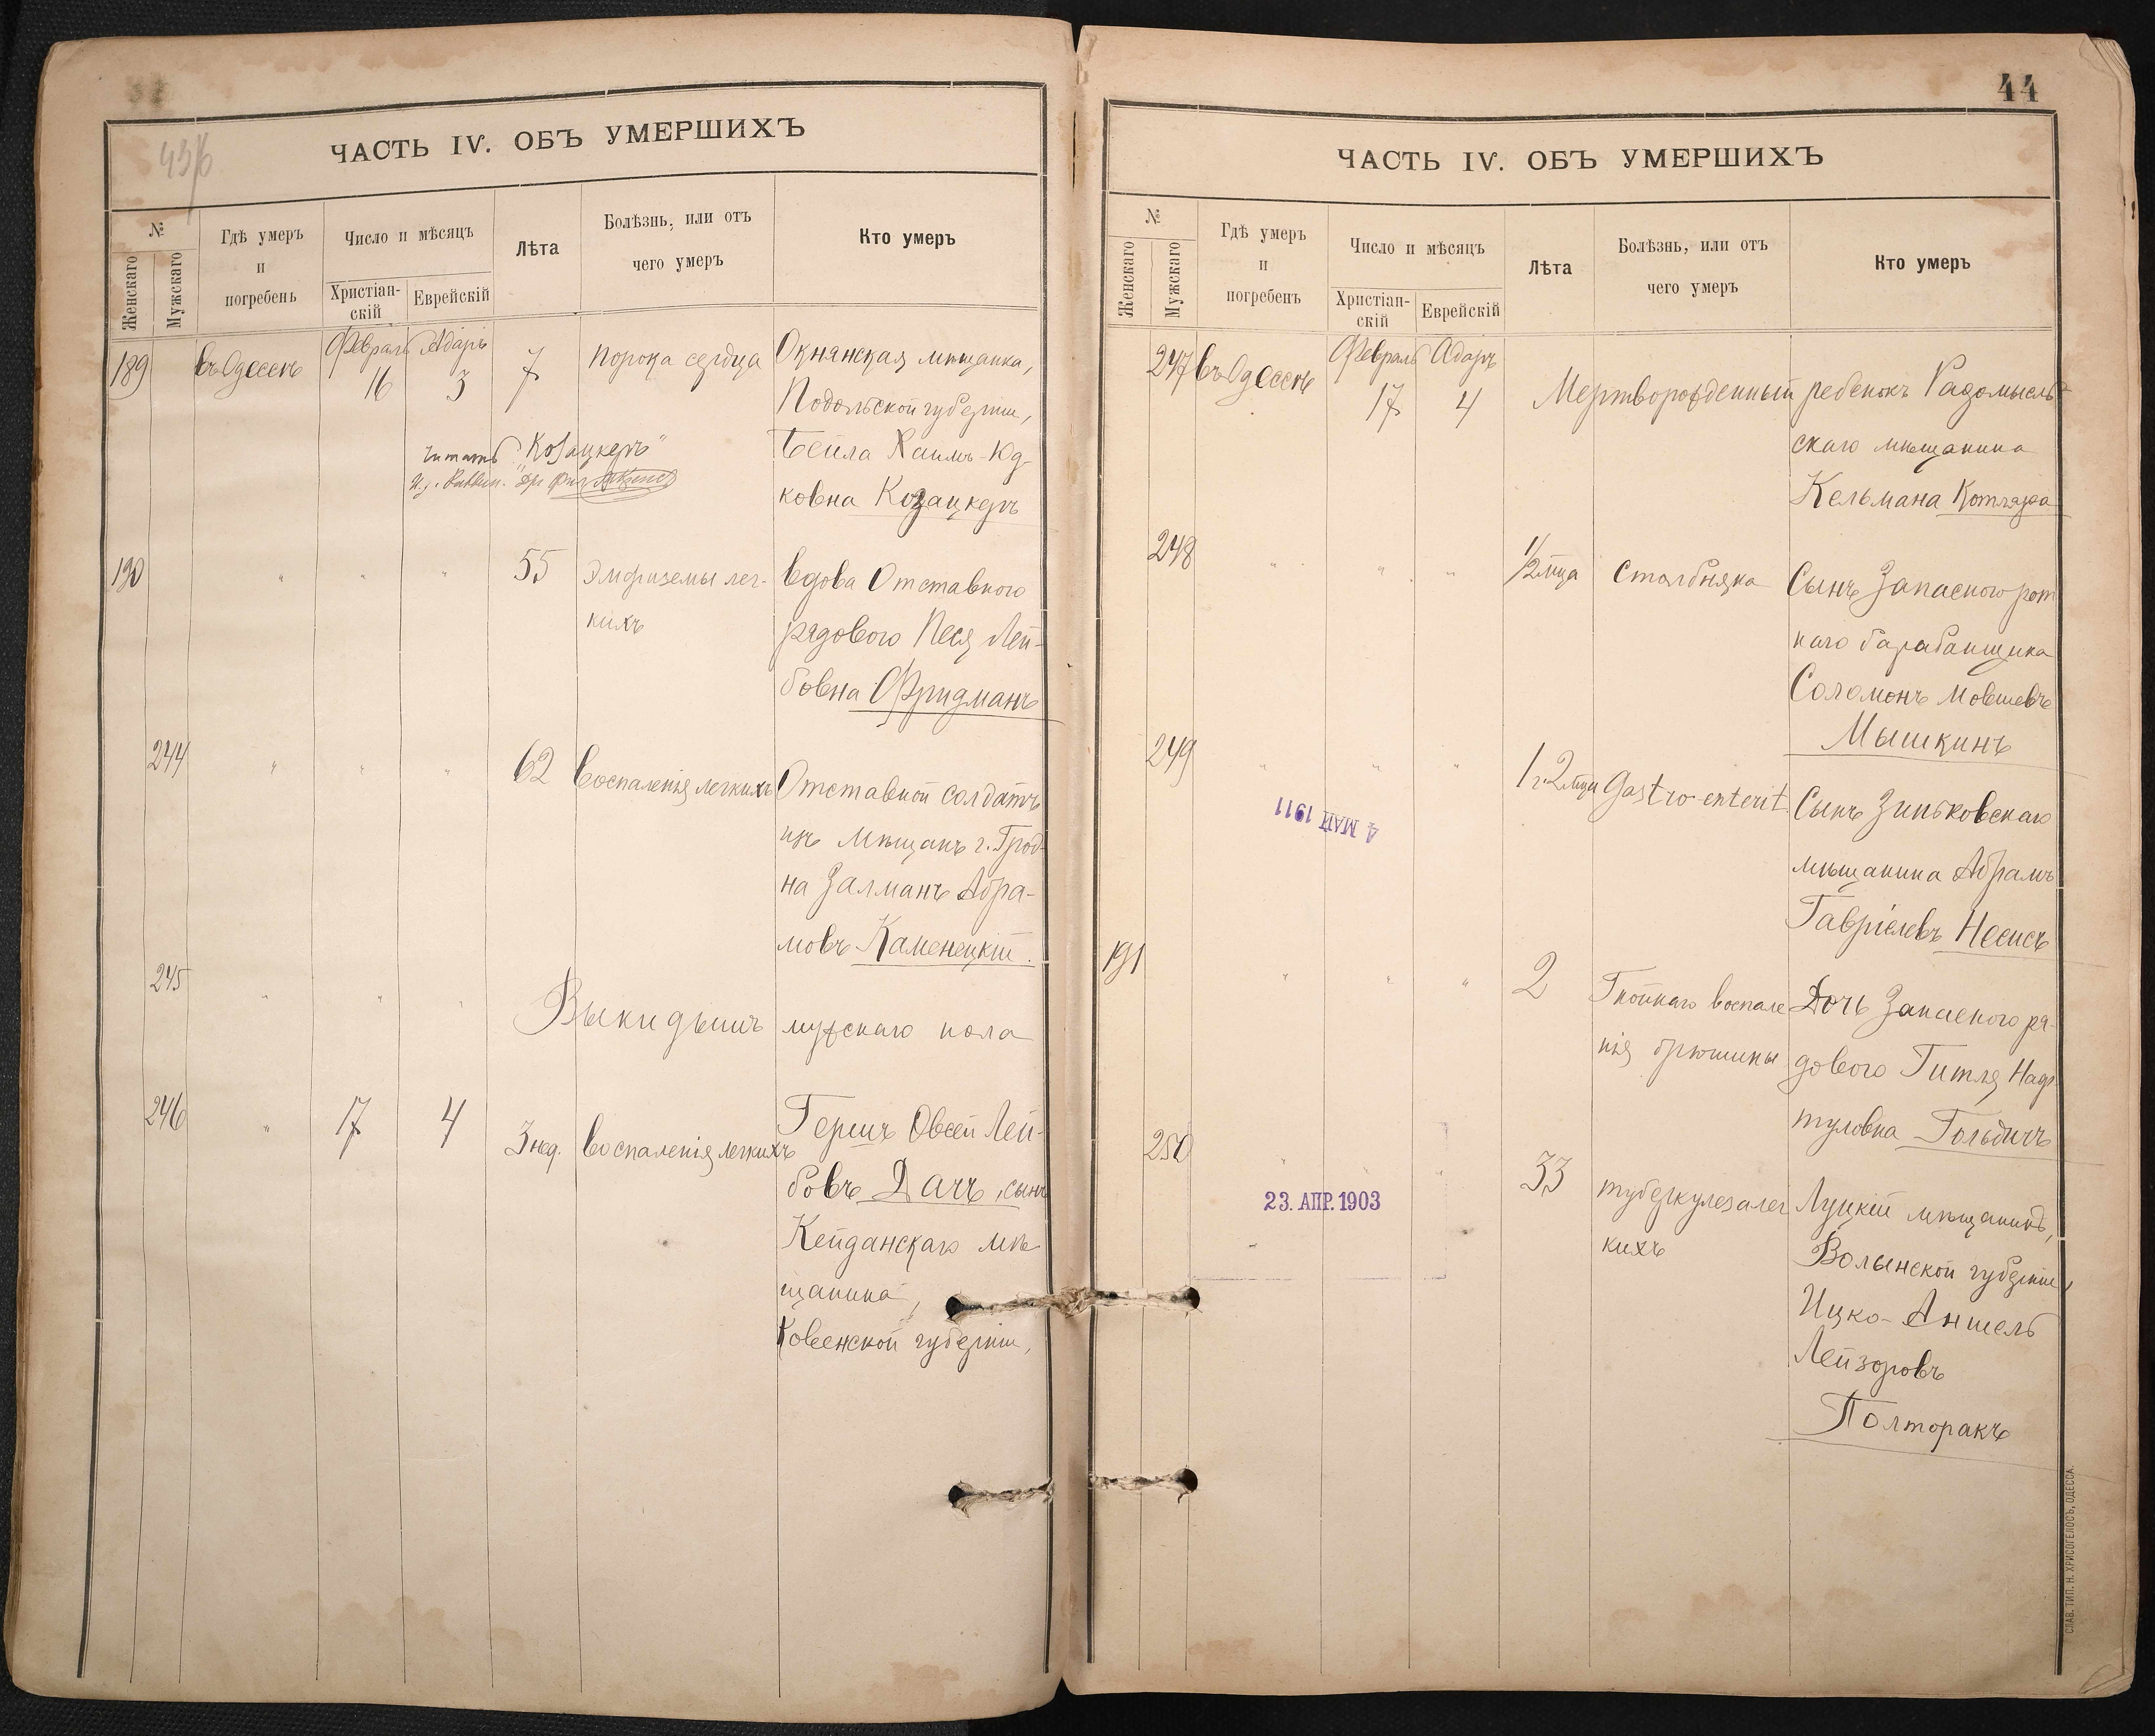 43/б
ЧАСТЬ IV. ОБЪ УМЕРШИХЪ
№
Женскаго
Мужскаго
Гдѣ умеръ
и
погребенъ
Число и мѣсяцъ
Христіан-
скій
Еврейскій
Лѣта
Болѣзнь, или отъ
чего умеръ
Кто умеръ
189 въ Одессѣ Февраль 16 Адаръ 3 7 порока сердца Окнянская мѣщанка,
Подольской губерніи,
Бейла Хаимъ-Юд-
ковна Козацкеръ
читать „Козацкеръ"
190 " " " 55 Эмфиземы лег- вдова Отставного
кихъ рядового Песя Лей-
бовна Фридманъ
244 " " " 62 Воспаленія легкихъ Отставной солдатъ
изъ мѣщанъ г. Грод-
на Залманъ Абра-
мовъ Каменецкій.
245 " " " Выкидышъ мужскаго пола
246 " 17 4 3 нед. Воспаленія легкихъ Гершъ Овсей Лей-
бовъ Дачъ, сынъ
Кейданскаго мѣ-
щанина,
Ковенской губерніи,
44
ЧАСТЬ IV. ОБЪ УМЕРШИХЪ
№
Женскаго
Мужскаго
Гдѣ умеръ
и
погребенъ
Число и мѣсяцъ
Христіан-
скій
Еврейскій
Лѣта
Болѣзнь, или отъ
чего умеръ
Кто умеръ
247 въ Одессѣ Февраль 17 Адаръ 4 Мертворожденный ребенокъ Радомысль-
скаго мѣщанина
Кельмана Котляра
248 " " " 1/2 мца Столбняка Сынъ Запасного рот
наго барабанщика
Соломонъ Мовшевъ
Мышкинъ
249 " " " 1 г. 2 мца Gastro-enterit Сынъ Зиньковскаго
мѣщанина Абрамъ
Гавріелевъ Несисъ
4 МАЙ 1911
191 " " " 2 Гнойнаго воспале Дочь Запасного ря-
нія брюшины дового Гитля
туловна Гольдичъ
250 " " " 33 туберкулеза лег Луцкій мѣщанинъ,
кихъ Волынской губерніи,
Ицко-Аншель
Лейзоровъ
Полторакъ
23. АПР. 1903
СЛАВ. ТИП. Н. ХРИСОГЕЛОСЪ, ОДЕССА.